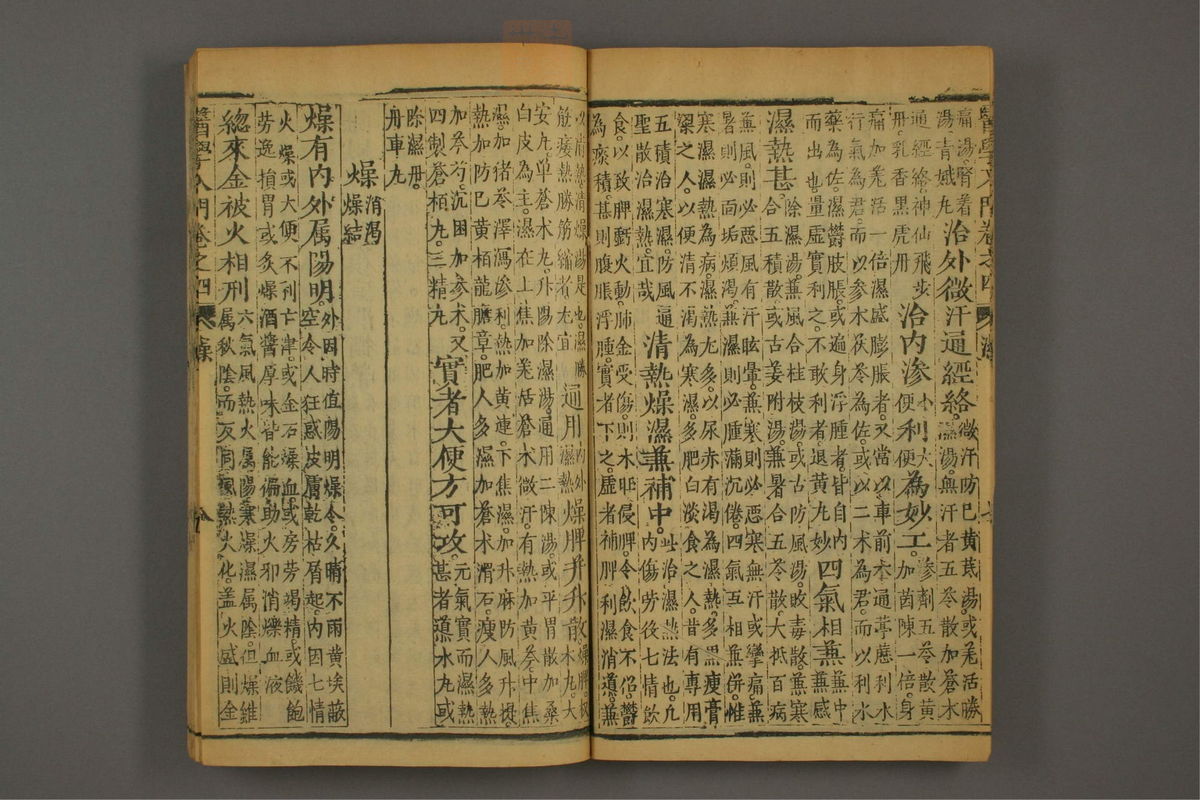 醫學入門卷之四 濕 七
痛湯。腎着
湯青娥丸
治外微汗通經絡。
微汗防已黃芪湯。或羌活勝
濕湯。無汗者五苓散加蒼朮
通經絡。神仙飛步
丹。乳香黑虎丹
治內滲小便利大便為妙工。
滲劑五苓散黃
加茵陳一倍。身
痛加羌活一倍。濕盛膨脹者。又當以車前木通葶藶利水
行氣為君。而以參朮茯苓為佐。或以二朮為君。而以利水
藥為佐。濕鬱肢脹。或遍身浮腫者。皆自內
而出也。量虛實利之。不敢利者。退黃丸妙
四氣相兼
兼中
兼感
濕熱甚。
除濕湯。兼風合桂枝湯。或古防風湯。敗毒散。兼寒
合五積散或古姜附湯。兼暑合五苓散。大抵百病
兼風。則必惡風有汗眩暈。兼寒則必惡寒無汗或攣痛。兼
暑則必面垢煩渴。兼濕則必腫滿沉倦。四氣互相兼併。惟
寒濕濕熱為病。濕熱尤多。以尿赤有渴為濕熱。多黑瘦膏
梁之人。以便清不渴為寒濕。多肥白淡食之人。昔有專用
五積散治寒濕。防風通
聖散治濕熱。宜哉
清熱燥濕兼補中。
此治濕熱法也。凡
內傷勞後七情飲
食。以致脾虧火動。肺金受傷。則木旺侵脾。令飲食不化。鬱
為痰積。甚則腹脹浮腫。實者下之。虛者補脾利濕消導。兼
以前熱清燥湯是也。濕勝
筋痿熱勝筋縮者尤宜
通用
內外
濕熱
燥脾并升散
燥脾。枳
朮丸。大
安丸。單蒼朮丸。升陽除濕湯。通用二陳湯。或平胃散加桑
白皮為主。濕在上焦加羌活蒼朮微汗。有熱加黃芩。中焦
濕。加猪苓澤瀉滲利。熱加黃連。下焦濕。加升麻防風升提
熱加防已黃栢龍膽草。肥人多濕加蒼朮滑石。瘦人多熱
加芩芍。沉困加參朮。又
四製蒼栢丸。三精丸
實者大便方可攻。
元氣實而濕熱
甚者導水丸。或
除濕丹。
舟車丸
燥
消渴
燥結
燥有內外属陽明。
外因時值陽明燥令。久晴不雨黃埃蔽
空。令人狂惑。皮膚乾枯屑起。內因七情
火燥。或大便不利亡津。或金石燥血。或房勞竭精。或饑飽
勞逸損胃。或炙煿酒醬厚味。皆能偏助火邪。消爍血液
總來金被火相刑。
六氣風熱火属陽。寒燥濕属陰。但燥雖
属秋陰。而反同風熱火化。盖火盛則金
醫學入門卷之四 燥 八